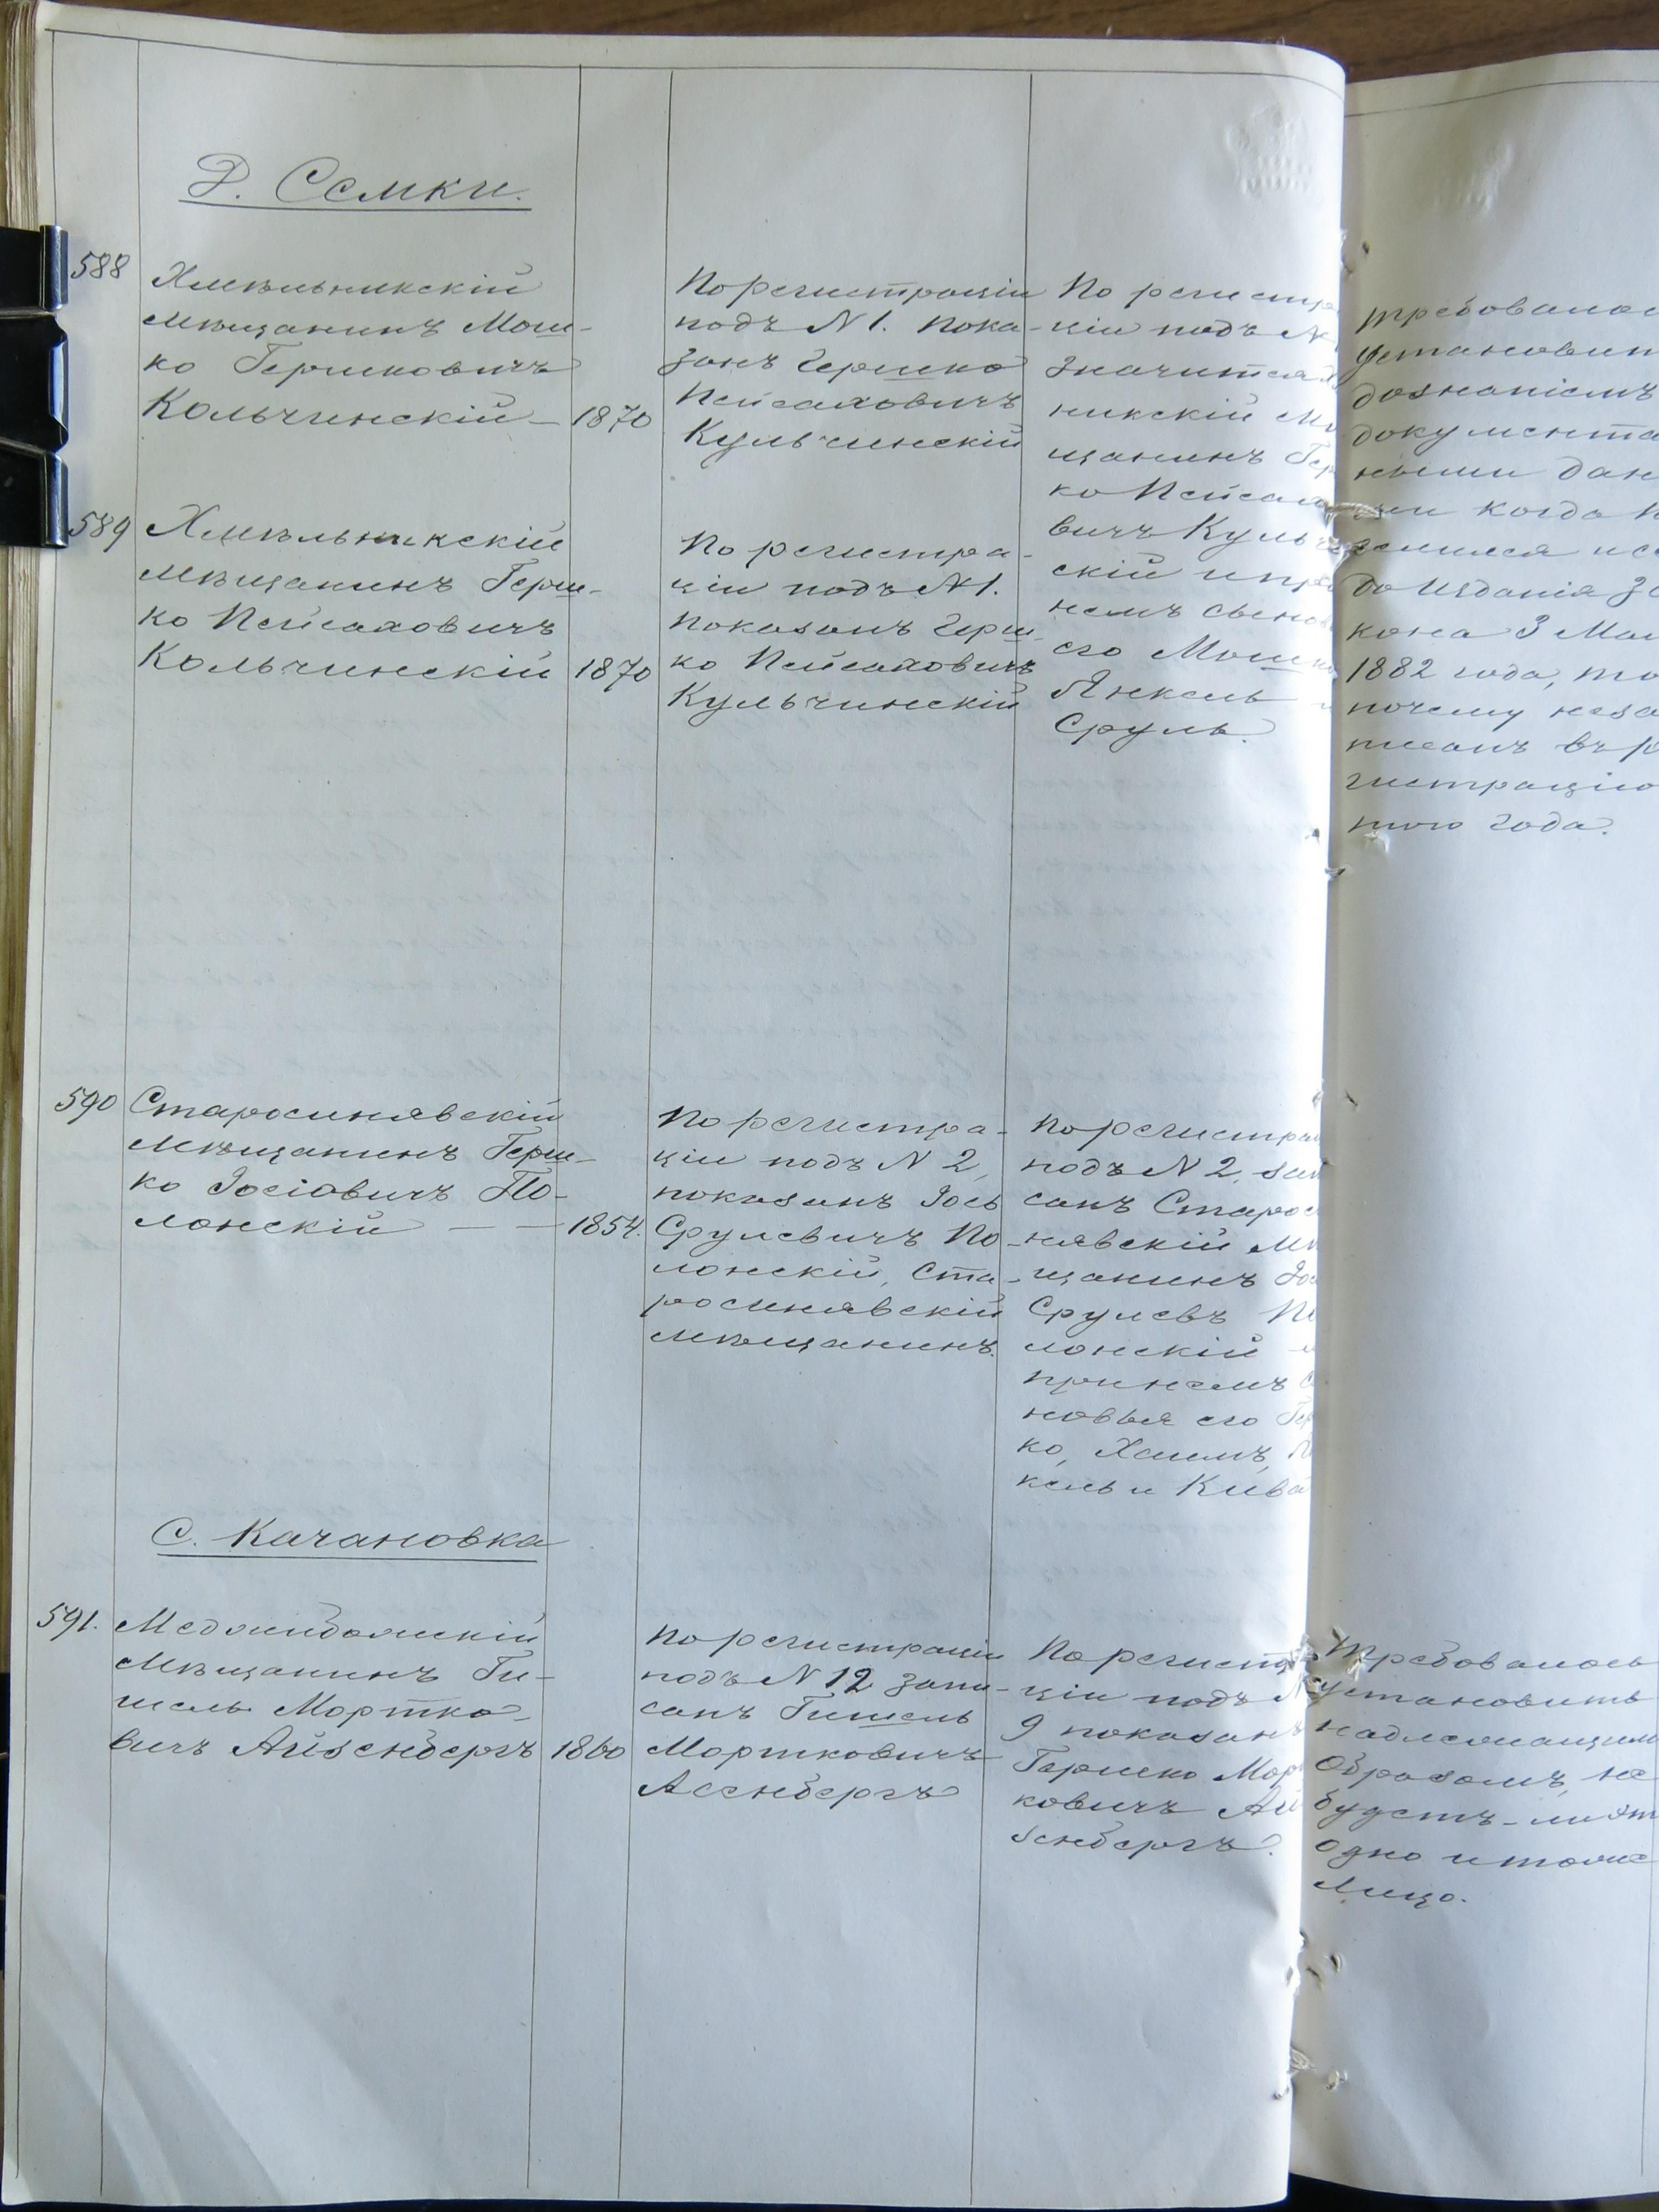 Д. Семки.
588
Хмѣльникскій
мѣщанинъ Мош-
ко Гершковичъ
Кольчинскій — 1870
По регистраціи
подъ N 1. пока-
занъ Гершко
Пейсаховичъ
Кульчинскій
По регистра
ціи подъ N
значится
никскій мѣ
щанинъ Гер
ко Пейсахо
вичъ Куль
скій и при
немъ сыно
его Мошко
Янкель
Сруль.
требовалос
установит
дознаніемъ
документа
ными дан
ми когда п
селился
до изданія за
кона 3 Мая
1882 года, то
почему неза
писанъ въ ре
гистрацію
того года.
589
Хмѣльникскій
мѣщанинъ Герш-
ко Пейсаховичъ
Кольчинскій 1870
По регистра-
ціи подъ N 1.
показанъ Герш-
ко Пейсаховичъ
Кульчинскій
590
Старосинявскій
мѣщанинъ Герш-
ко Іосіовичъ По-
лонскій — — 1854.
По регистра-
ціи подъ N 2,
показанъ Іось
Срулевичъ По-
лонскій, Ста-
росинявскій
мѣщанинъ.
По регистра
подъ N 2, зап
санъ Старос
нявскій мѣ
щанинъ Іос
Срулевъ По
лонскій
при немъ с
новья его Гер
ко, Хаимъ,
кель и Кива
С. Качановка
591.
Меджибожскій
мѣщанинъ Ги-
шель Мортко-
вичъ Айзенбергъ 1860
По регистраціи
подъ N 12 запи-
санъ Гишель
Мортковичъ
Асенбергъ
По регистра
ціи подъ N
9 показанъ
Гершко Морт
ковичъ Ай
зенбергъ.
Требовалось
установить
надлежащимъ
образомъ, не
будетъ-ли эт
одно и тоже
лицо.